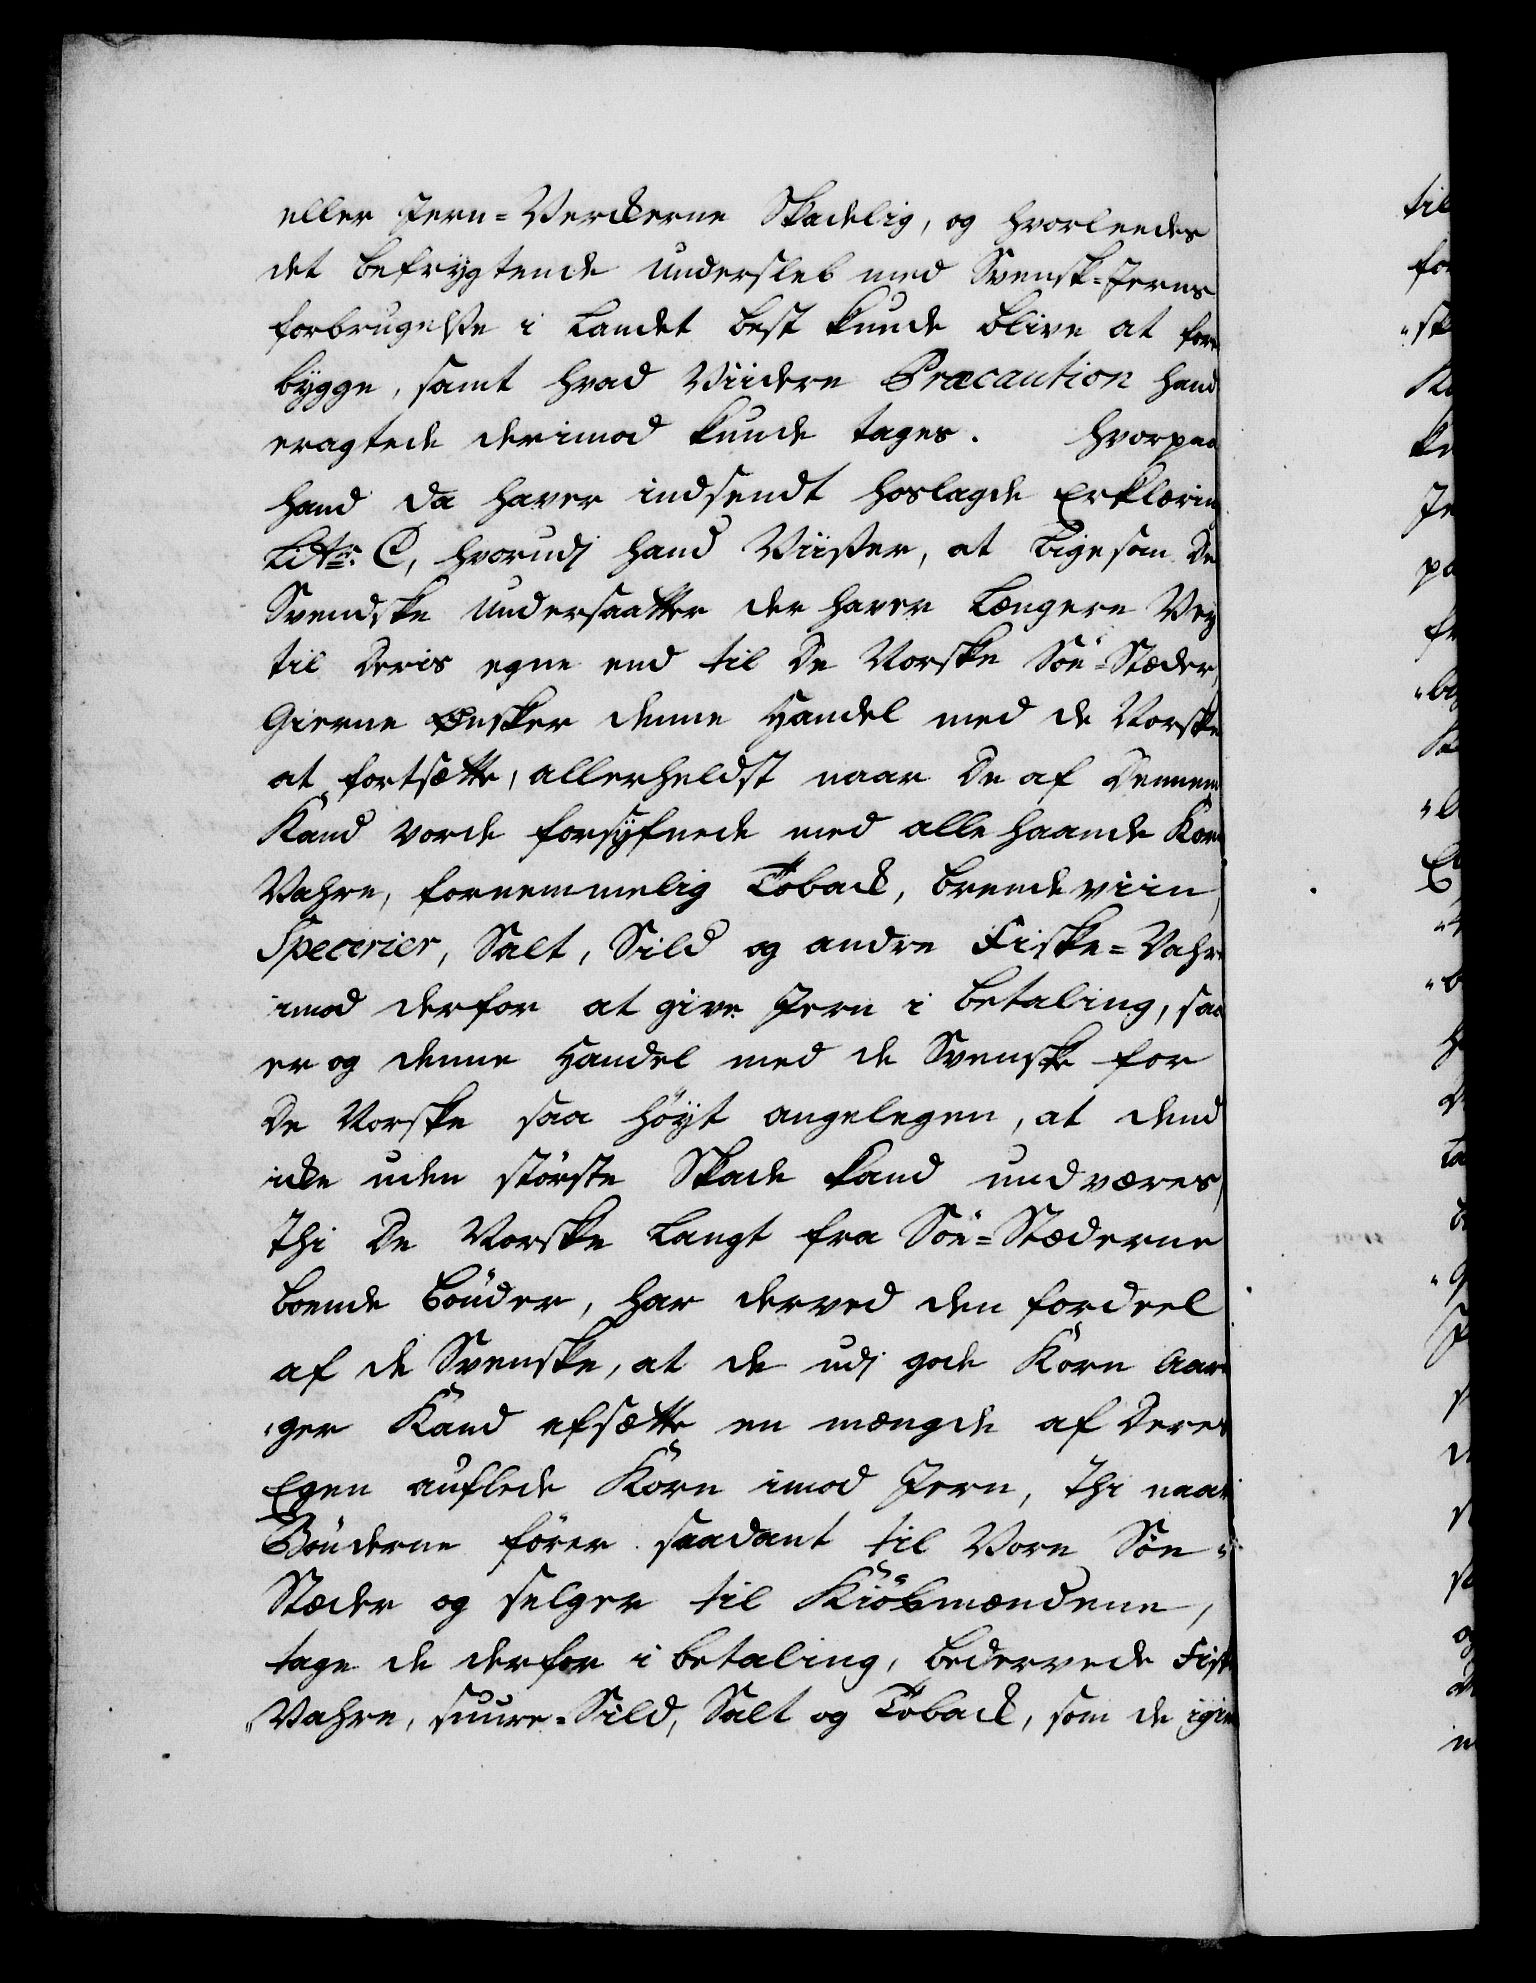 eller Jern-Verckerne Skadelig, og hvorleedes
det befrygtende undersleb med Svensk-Jerns
forbrugelße i Landet best kunde blive at fore
bygge, samt hvad Viidere Præcaution hand
eragtede derimod kunde tages. hvorpaa
hand da haver indsendt hoslagde Erklæring
Littr: C, hvorudj hand Viißer, at ligesom De
Svendske undersaatter der haver Længere Vey
til Deris egne end til De Norske Söe-Stæder,
Gierne Ønsker denne Handel med de Norske
at fortsætte, allerheldst naar De af Dennem
Kand vorde forsyfnede med alle haande Korn
Vahre, fornemmelig Toback, brendeviin,
Specerier, Salt, Sild og andre Fiske-Vahre
imod derfor at give Jern i betaling, saa
er og denne Handel med de Svenske for
De Norske saa höyt angelegen, at dend
icke uden störste Skade kand undværes,
Thi De Norske Langt fra Söe-Stæderne
boende bönder, har derved den fordeel
af de Svenske, at de udj gode Korn Aarin
ger Kand afsætte en mængde af Deres
Egen auflede Korn imod Jern, Thi naar
Bönderne förer saadant til Vore Söe-
Stæder og selger til Kiöbmændene,
tage de derfor i betaling, bedervede Fiske
Vahre, suure-Sild, Salt og Toback, som de igien